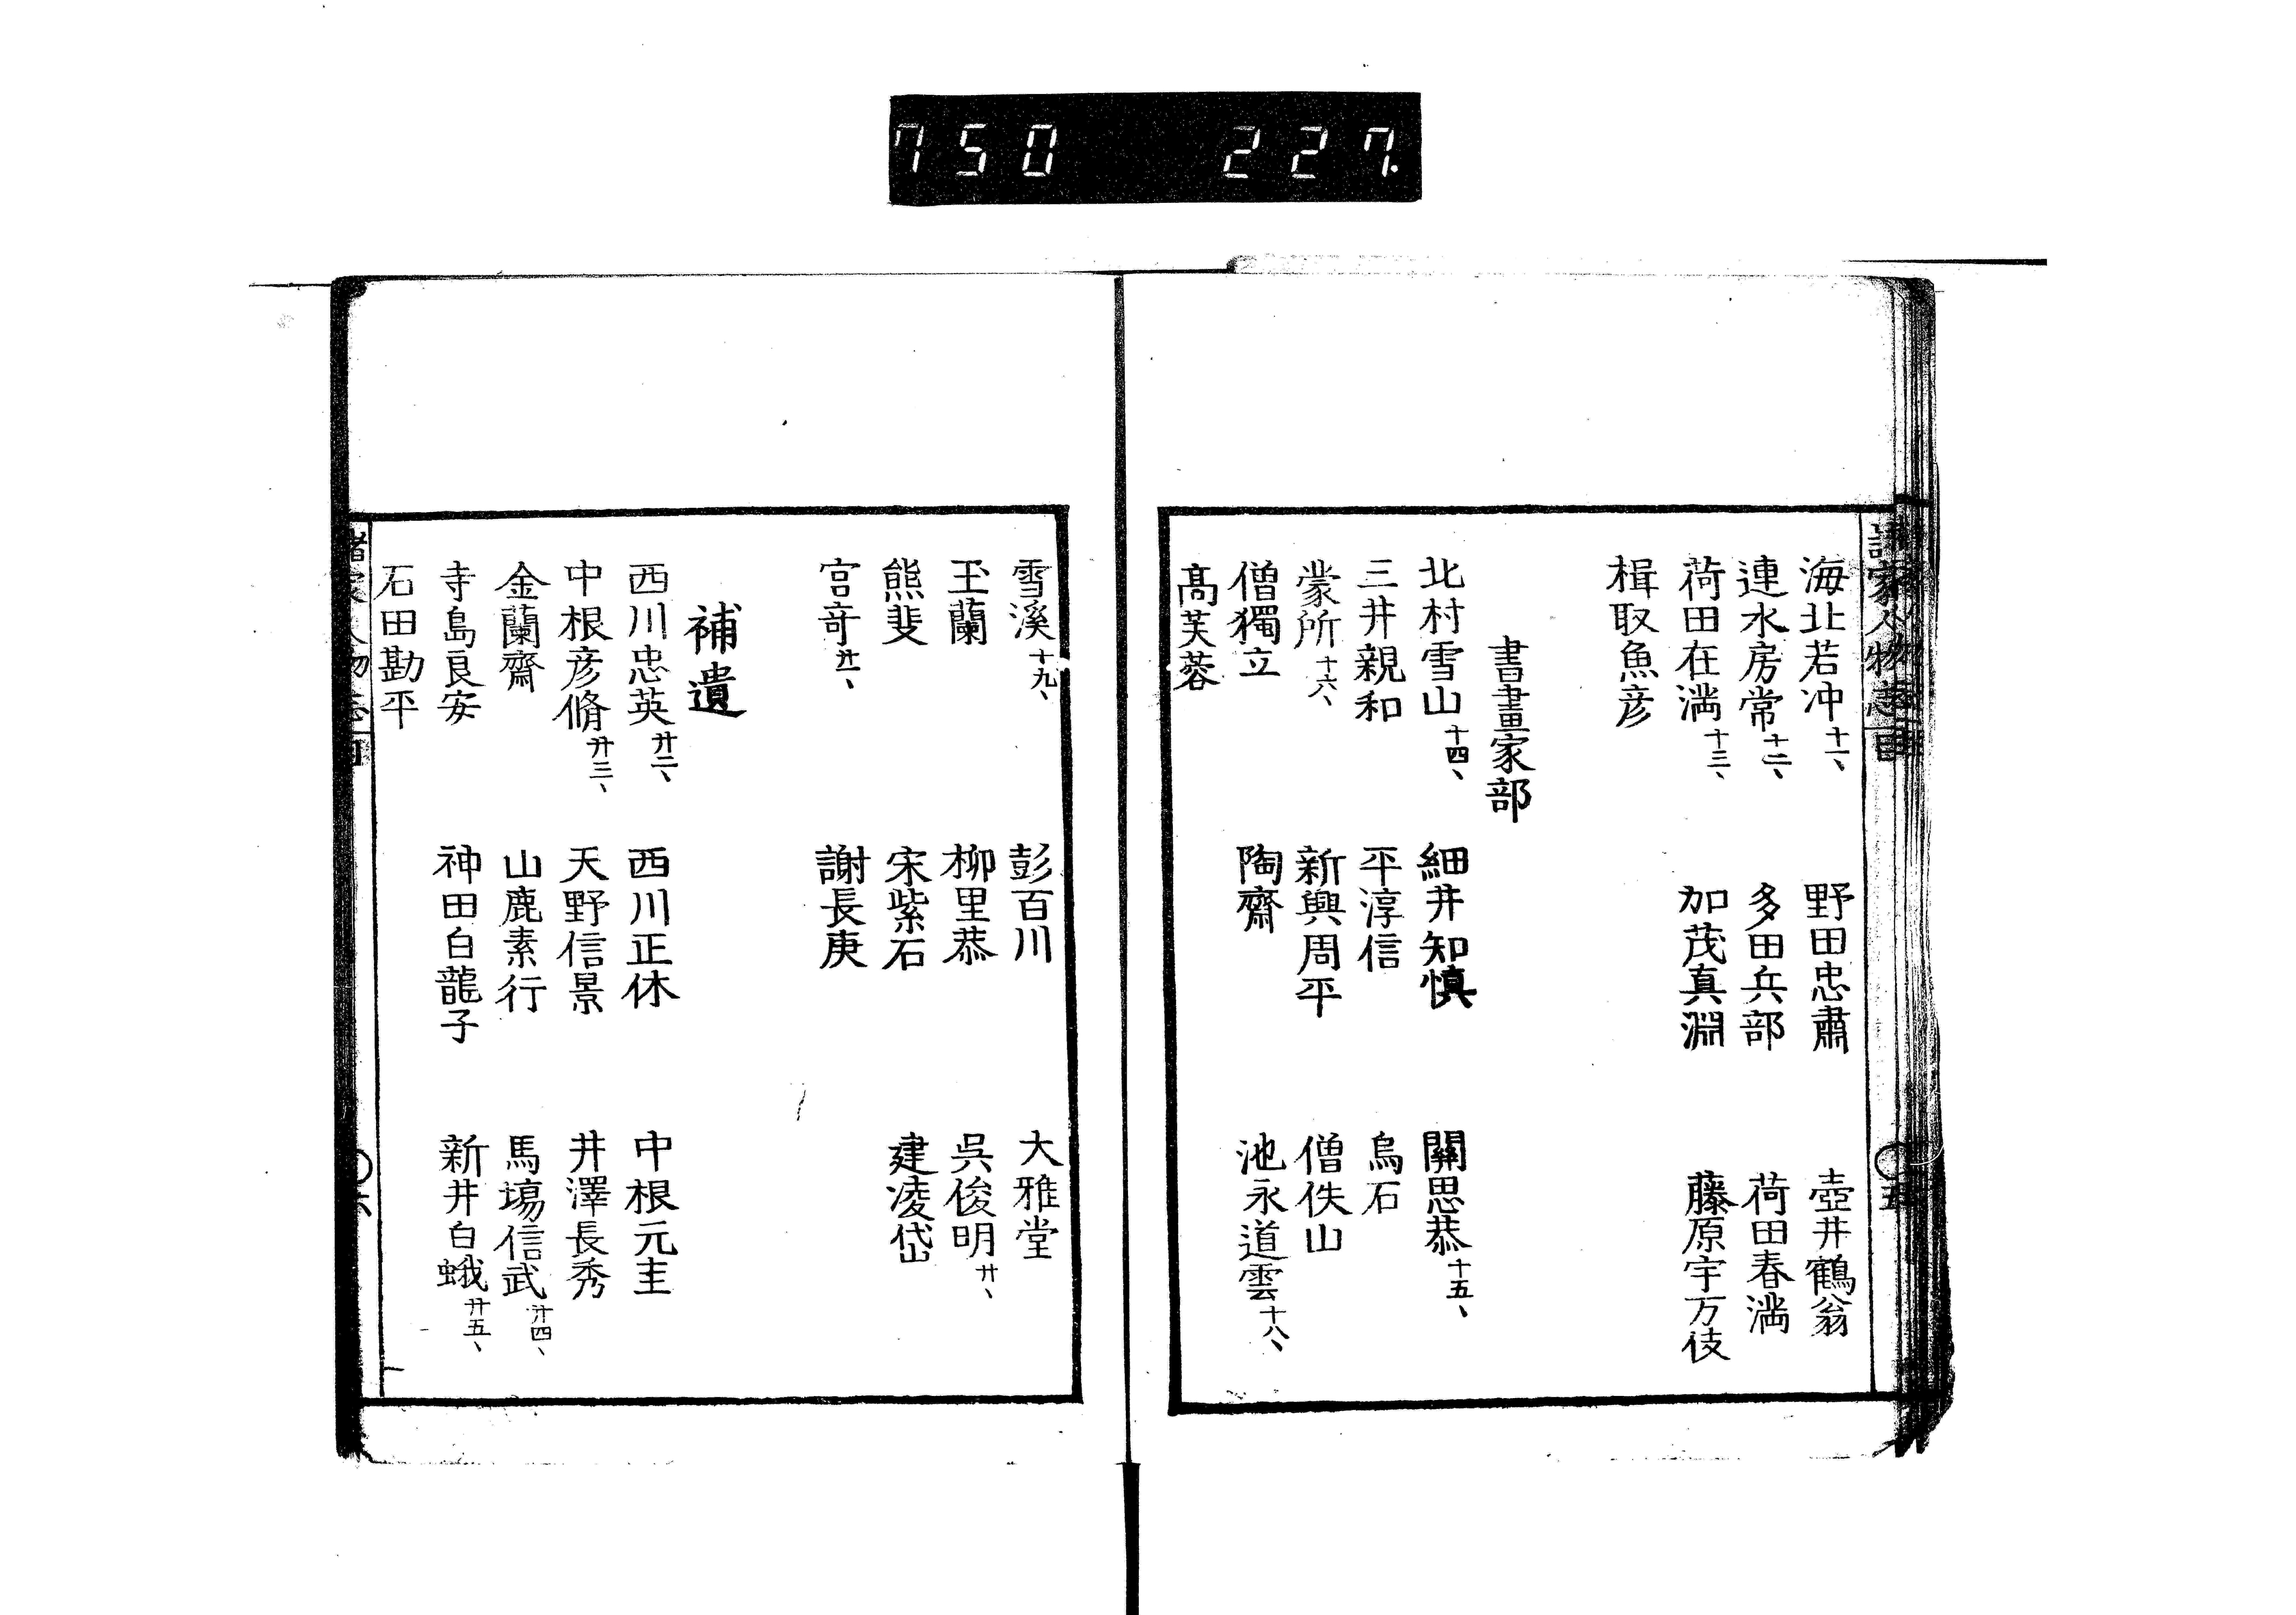 750 227.
海北若冲十一、 野田忠肅 壺井鶴翁
連水房常十二、 多田兵部 荷田春滿
荷田在滿十三、 加茂真淵 藤原宇万伎
楫取魚彦
書畫家部
北村雪山十四、 細井知慎 關思恭十五、
三井親和 平淳信 烏石
蒙所十六、 新興周平 僧佚山
僧獨立 陶齋 池永道雲十八、
高芙蓉
雪溪十九、 彭百川 大雅堂
玉蘭 柳里恭 吳俊明廾、
熊斐 宋紫石 建凌岱
宮竒廾一、 謝長庚
補遺
西川忠英廾二、 西川正休 中根元圭
中根彦脩廾三、 天野信景 井澤長秀
金蘭齋 山鹿素行 馬場信武廾四、
寺島良安 神田白龍子 新井白蛾廾五、
石田勘平